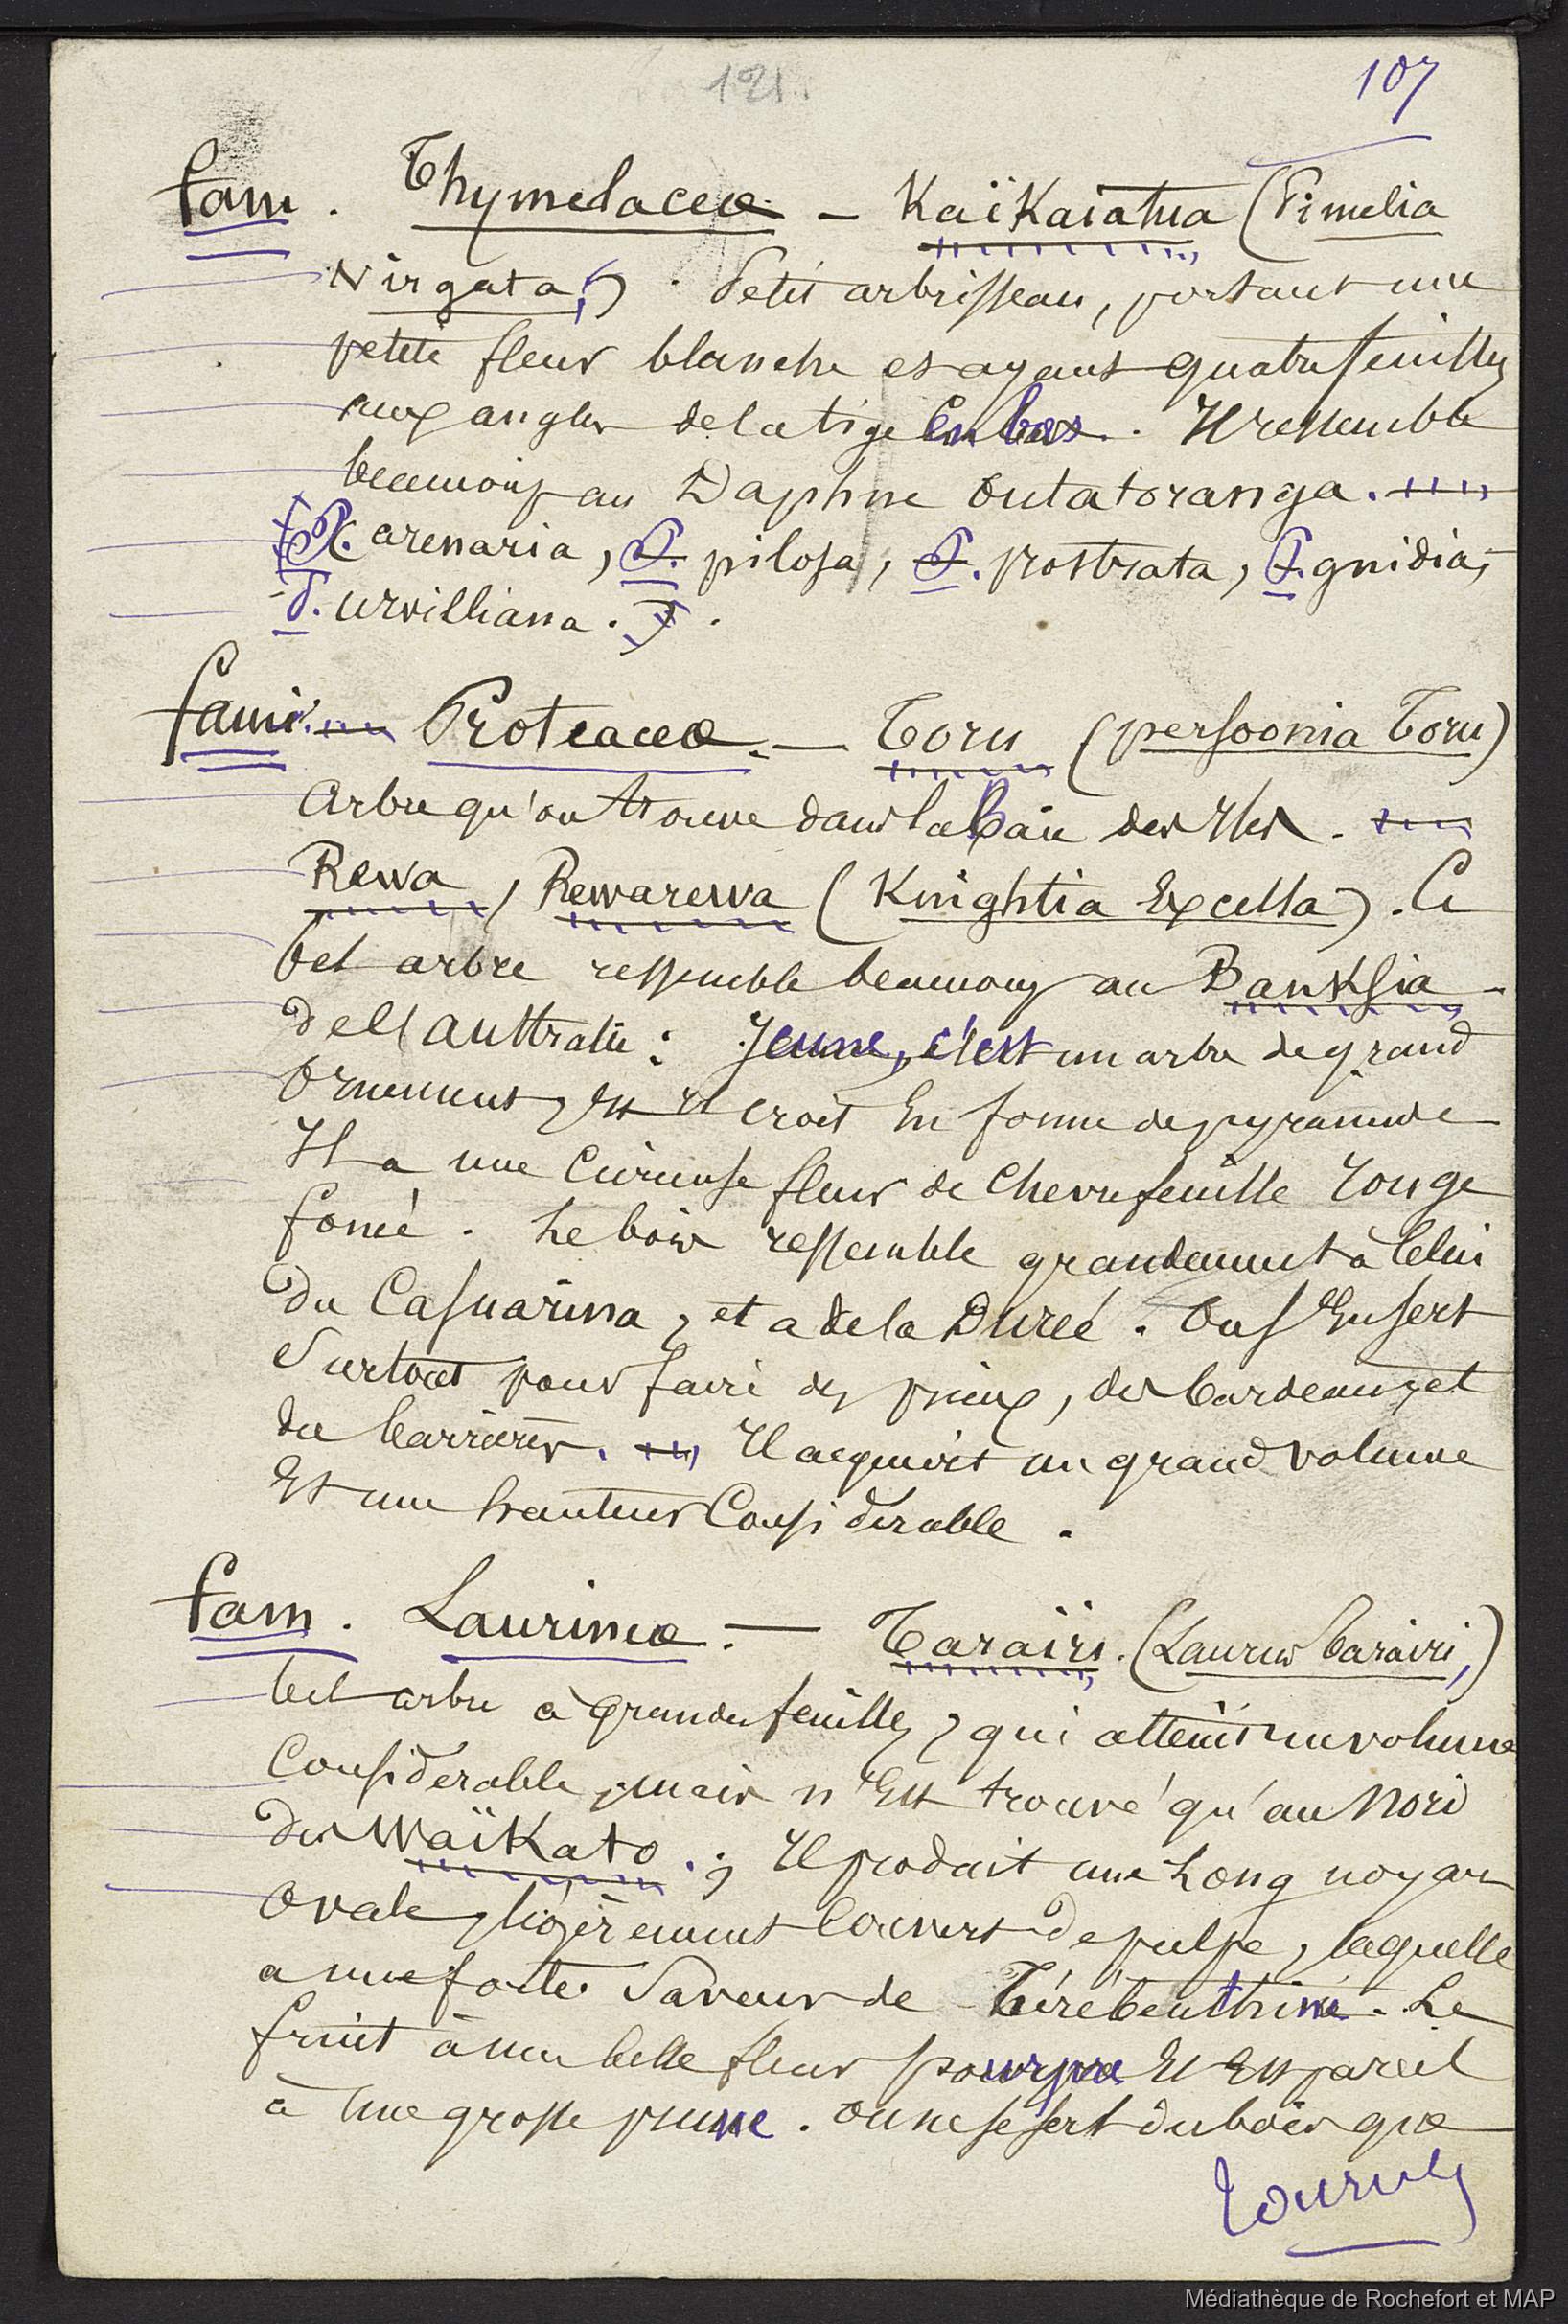 121
107
fam. Thymelaceæ — Kaïkaiatua (Pimelia
virgata,). Petit arbrisseau, portant une
petite fleur blanche et ayant quatre feuilles
aux angles de la tige en bas. Il ressemble
beaucoup au Daphne outatoranga.
(P. arenaria, P. pilosa, P. prostrata, P. gnidia,
P. urvilliana.).
fami. Proteaceæ. — Toru (persoonia Toru)
Arbre qu'on trouve dans la Baie des Iles.
Rewa, Rewarewa (Knightia Excelsa). Ce
bel arbre ressemble beaucoup au Banksia
de l'Australie: Jeune, c'est un arbre de grand
ornement, il croit en forme de pyramide
Il a une curieuse fleur de chevrefeuille rouge
foncé. Le bois ressemble grandement à celui
du Casuarina, et a de la Durée. On s'en sert
surtout pour faire des pieux, des bardeaux, et
des barrières. Il acquiert un grand volume
Et une hauteur Considérable.
fam. Laurineæ. — Taraïri. (Laurus taraïri,)
bel arbre à grandes feuilles, qui atteint un volume
Considérable, mais n'est trouvé qu'au Nord
des Waïkato.; Il produit une Long noyau
Ovale, légèrement couvert de pulpe, laquelle
a une forte Saveur de Térébenthine. Le
fruit à une belle fleur pourpre Et Est pareil
à une grosse prune. on ne se sert du bois que
tournez
Médiathèque de Rochefort et MAP